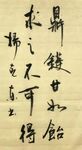 鼎鑊甘如飴
求之不可得
楊